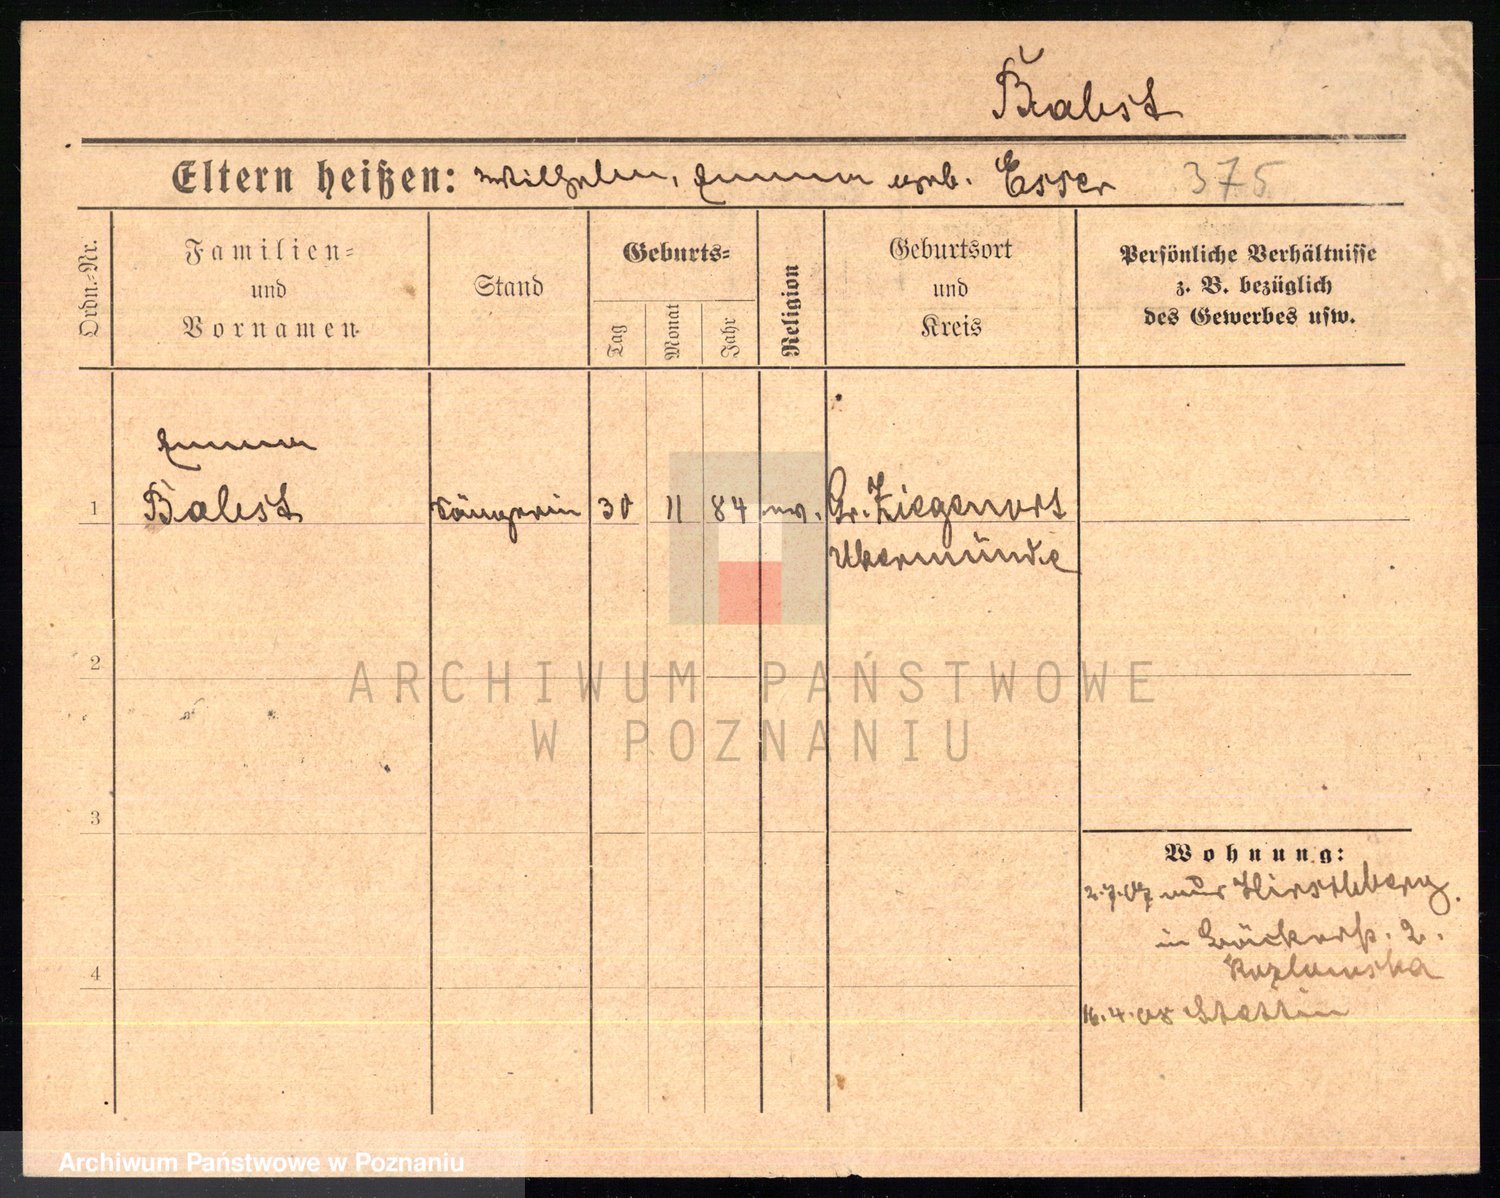 Babst
Eltern heißen: Wilhelm, Emma geb. Esser 375
Ordn.-Nr.
Familien-
und
Vornamen
Stand
Geburts-
Tag
Monat
Jahr
Religion
Geburtsort
und
Kreis
Persönliche Verhältnisse
z. B. bezüglich
des Gewerbes usw.
Emma
1 Babst Sängerin 30 11 84 ev. Gr. Ziegenort
Ukermünde
2
ARCHIWUM PAŃSTWOWE
W POZNANIU
3
Wohnung:
2.7.07 aus Hirschberg.
in Bäckerstr. 2.
Kozlowska
4
16.4.08 Stettin
Archiwum Państwowe w Poznaniu